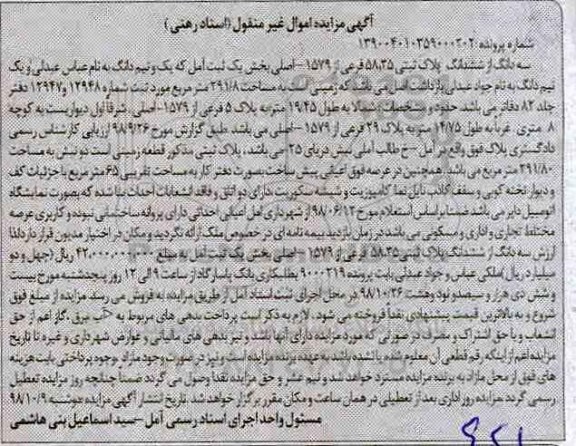 آگهی مزایده اموال غیر منقول (اسناد رهنی)
شماره پرونده: ۱۳۹۰۰۴۰۱۰۳۵۹۰۰۰۲۰۲
سه دانگ از ششدانگ پلاک ثبتی ۵۸،۳۵ فرعی از ۱۵۷۹- اصلی بخش یک ثبت آمل که یک و نیم دانگ به نام عباس عبدلی و یک
نیم دانگ به نام جواد عبدلی بازداشت اصل می باشد که زمینی است به مساحت ۲۹۱/۸ متر مربع مورد ثبت شماره ۱۲۹۴۸ و ۱۲۹۴۷ دفتر
جلد ۸۲ دفاتر می باشد. حدود و مشخصات: شمالا به طول ۱۹/۴۵ متر به پلاک ۵ فرعی از ۱۵۷۹-اصلی. شرقا اول دیواریست به کوچه
۸ متری. غربا به طول ۱۴/۷۵ متر به پلاک ۲۹ فرعی از ۱۵۷۹- اصلی می باشد طبق گزارش مورخ ۹۸/۹/۲۶ ارزیابی کارشناس رسمی
دادگستری پلاک فوق واقع در آمل -خ طالب آملی نبش دریای ۲۵- می باشد، پلاک ثبتی مذکور قطعه زمینی است دو نبش به مساحت
۲۹۱/۸۰ متر مربع می باشد. همچنین در عرصه فوق اعیانی پیش ساخت بصورت دفتر کار به مساحت تقریبی ۶۵ متر مربع با جزئیات کف
و دیوار تخته کوبی و سقف کاذب تایل نما کامپوزیت و شیشه سکوریت دارای دو اتاق و فاقد انشعابات احداث بنا شده که بصورت نمایشگاه
اتومبیل دایر می باشد ضمنا بر اساس استعلام مورخ ۹۸/۰۶/۱۲ از شهرداری آمل اعیانی احداثی دارای پروانه ساختمانی نبوده و کاربری عرصه
مختلط تجاری و اداری و مسکونی می باشد در زمان بازدید بیمه نامه ای در خصوص ملک ارائه نگردید و مکان در اختیار مدیون قرار دارد لذا
ارزش سه دانگ از ششدانگ پلاک ثبتی ۵۸،۳۵ فرعی از ۱۵۷۹- اصلی بخش یک ثبت آمل به مبلغ ۴۲،۰۰۰،۰۰۰،۰۰۰ ریال (چهل و دو
میلیارد ریال) ملکی عباس و جواد عبدلی بابت پرونده ۹۰۰۰۲۱۹ بطلبکاری بانک پاسارگاد از ساعت ۹ الی ۱۲ روز پنجشنبه مورخ بیست
و شش دی هزار و سیصد و نود و هشت ۹۸/۱۰/۲۶ در محل اجرای ثبت اسناد آمل از طریق مزایده به فروش می رسد مزایده از مبلغ فوق
شروع و به بالاترین قیمت پیشنهادی نقدا فروخته می شود. لازم به ذکر است پرداخت بدهی های مربوط به آب، برق، گاز اعم از حق
انشعاب و یا حق اشتراک و مصرف در صورتی که مورد مزایده دارای آنها باشد و نیز بدهی های مالیاتی و عوارض شهرداری و غیره تا تاریخ
مزایده اعم از اینکه رقم قطعی آن معلوم شده یا نشده باشد به عهده برنده مزایده است و نیز در صورت وجود مازاد، وجوه پرداختی بابت هزینه
های فوق از محل مازاد به برنده مزایده مسترد خواهد شد و نیم عشر و حق مزایده نقدا وصول می گردد ضمنا چنانچه روز مزایده تعطیل
رسمی گردد، مزایده روز اداری بعد از تعطیلی در همان ساعت و مکان مقرر برگزار خواهد شد. تاریخ انتشار آگهی مزایده دوشنبه ۹۸/۱۰/۹
مسئول واحد اجرای اسناد رسمی آمل - سید اسماعیل بنی هاشمی